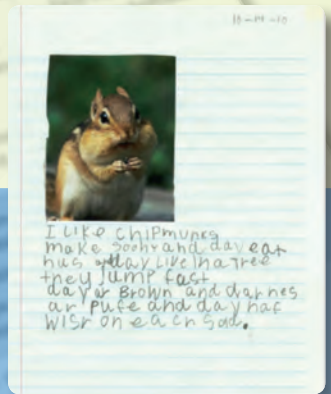 10-14-10
I LIKE CHIPMUNKS
make and day eat
nus day LIVE In a Tree
they JUMP fast
day ar Brown and dar nes
ar PUFE and day haf
WISr on each Sad.